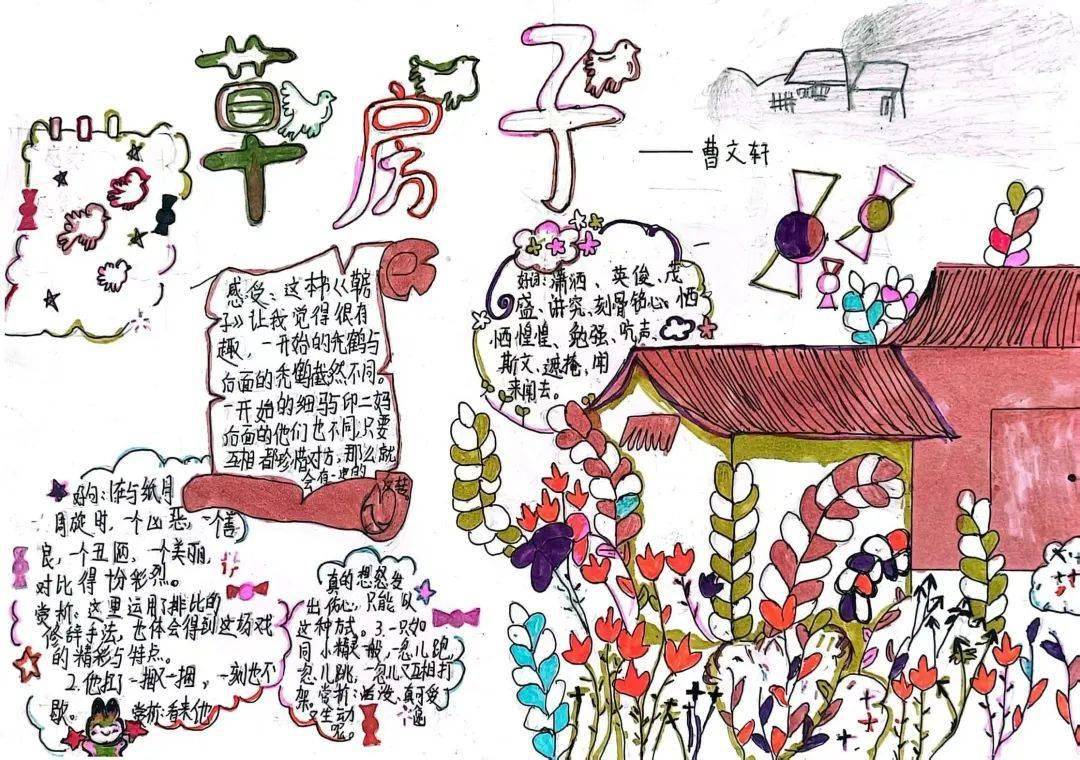 草房子
——曹文轩
感受:这本《草房
子》让我觉得很有
趣,一开始的秃鹤与
后面的秃鹤截然不同。
一开始的细马与邱二妈
后面的他们也不同,只要
互相都珍惜对方,那么就
会有
好词:潇洒、英俊、茂
盛、讲究、刻骨铭心、恓
恓惶惶、勉强、吭声、
斯文、遮掩、闹
来闹去。
好句:1.在与纸月
周旋时,一个凶恶,一个善
良,一个丑陋,一个美丽,
对比得十分彩烈。
赏析:这里运用了排比的
修辞手法,也体会得到这场戏
的精彩与特点。
2.他扛了一捆又一捆,一刻也不
歇。 赏析:看来他
真的想忽发
出伤心,只能以
这种方式。3.一只如
同小精灵一般,一忽儿跑,
一忽儿跳,一忽儿又互相打
架。赏析:活泼、真可爱
又生动
呢。